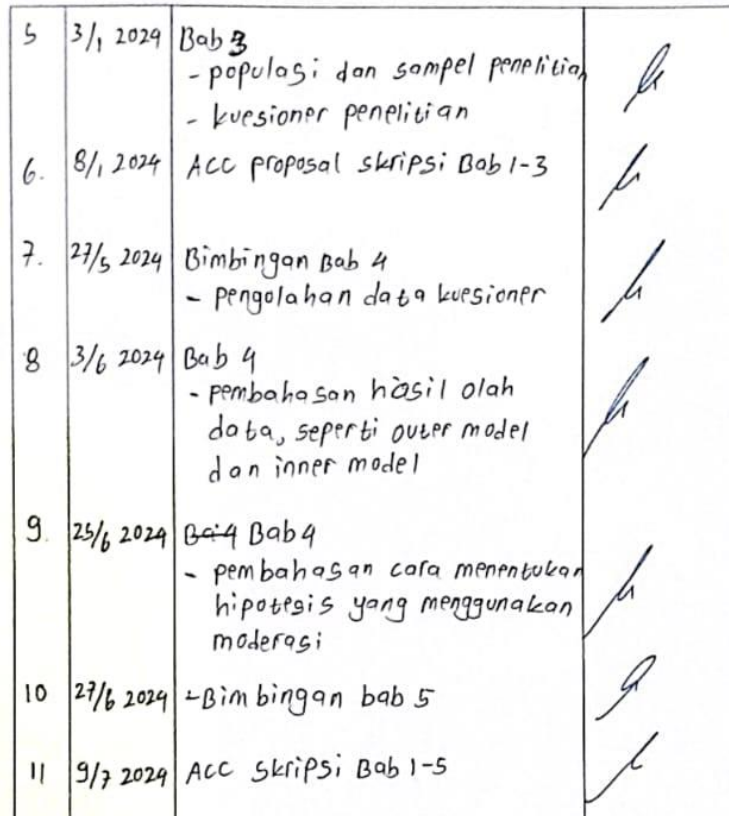 5 3/1 2024 Bab 3
- populasi dan sampel penelitian
- kuesioner penelitian
6. 8/1 2024 ACC proposal skripsi Bab 1-3
7. 27/5 2024 Bimbingan Bab 4
- pengolahan data kuesioner
8 3/6 2024 Bab 4
- pembahasan hasil olah
data, seperti outer model
dan inner model
9. 25/6 2024 Ba:4 Bab 4
- pembahasan cara menentukan
hipotesis yang menggunakan
moderasi
10 27/6 2024 -Bimbingan bab 5
11 9/7 2024 ACC Skripsi Bab 1-5